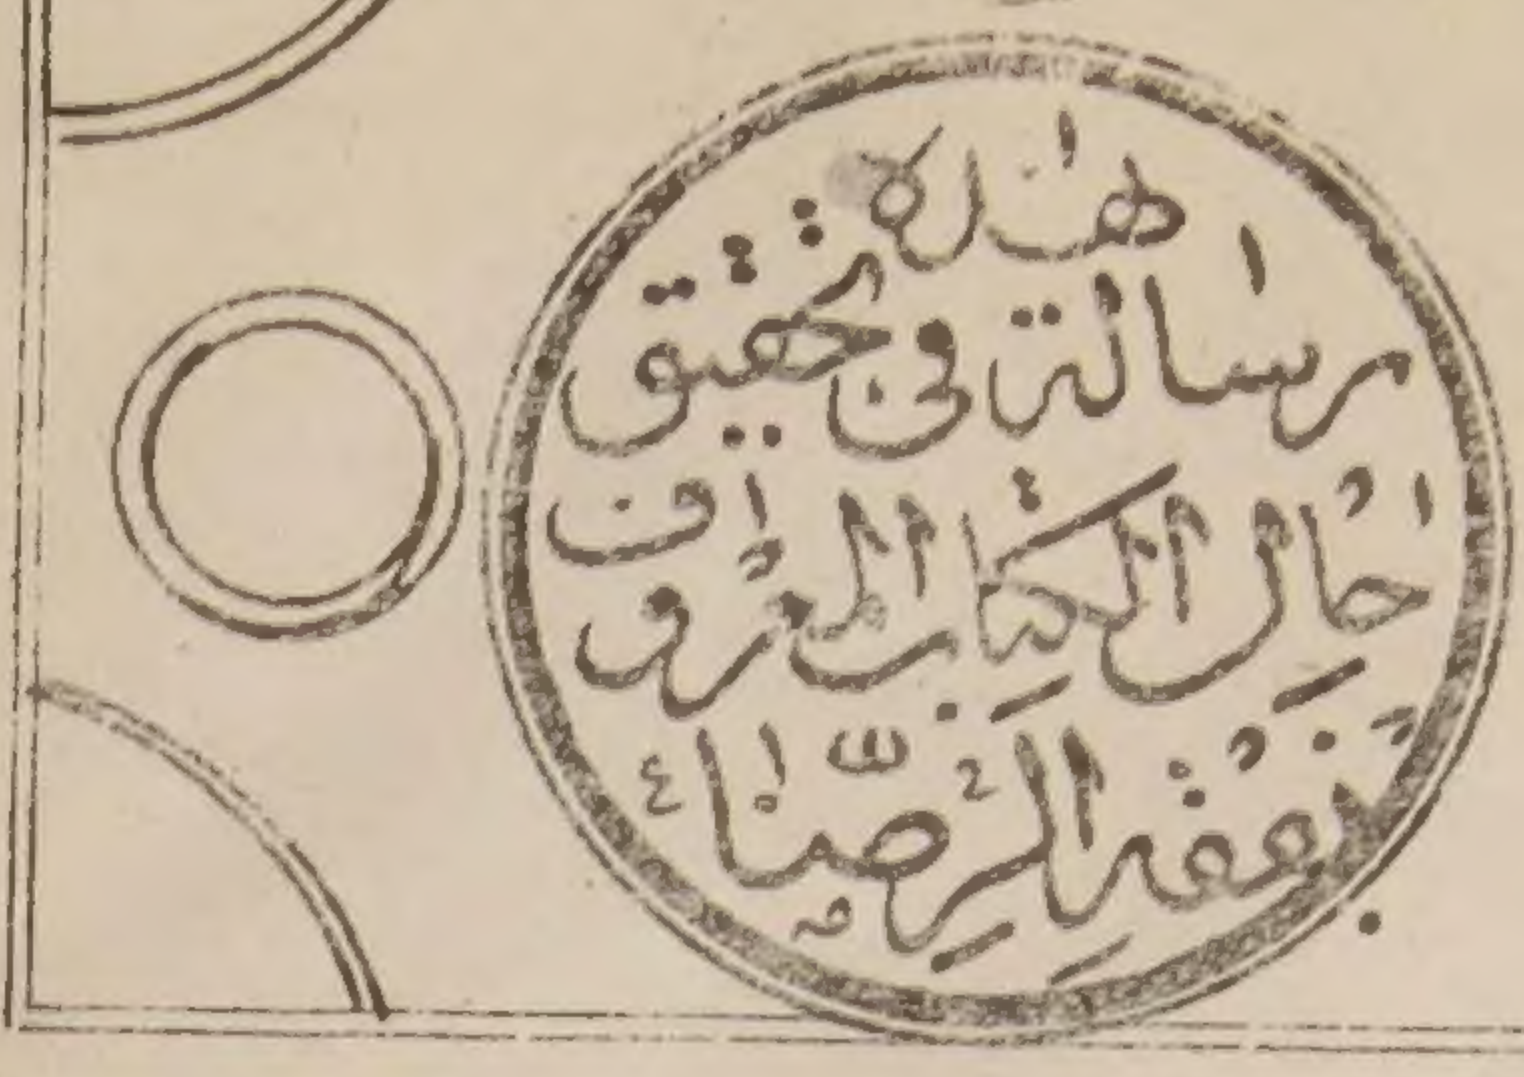 هذه
رسالة في تحقيق
حال الكتاب المعروف
بفقه الرضا